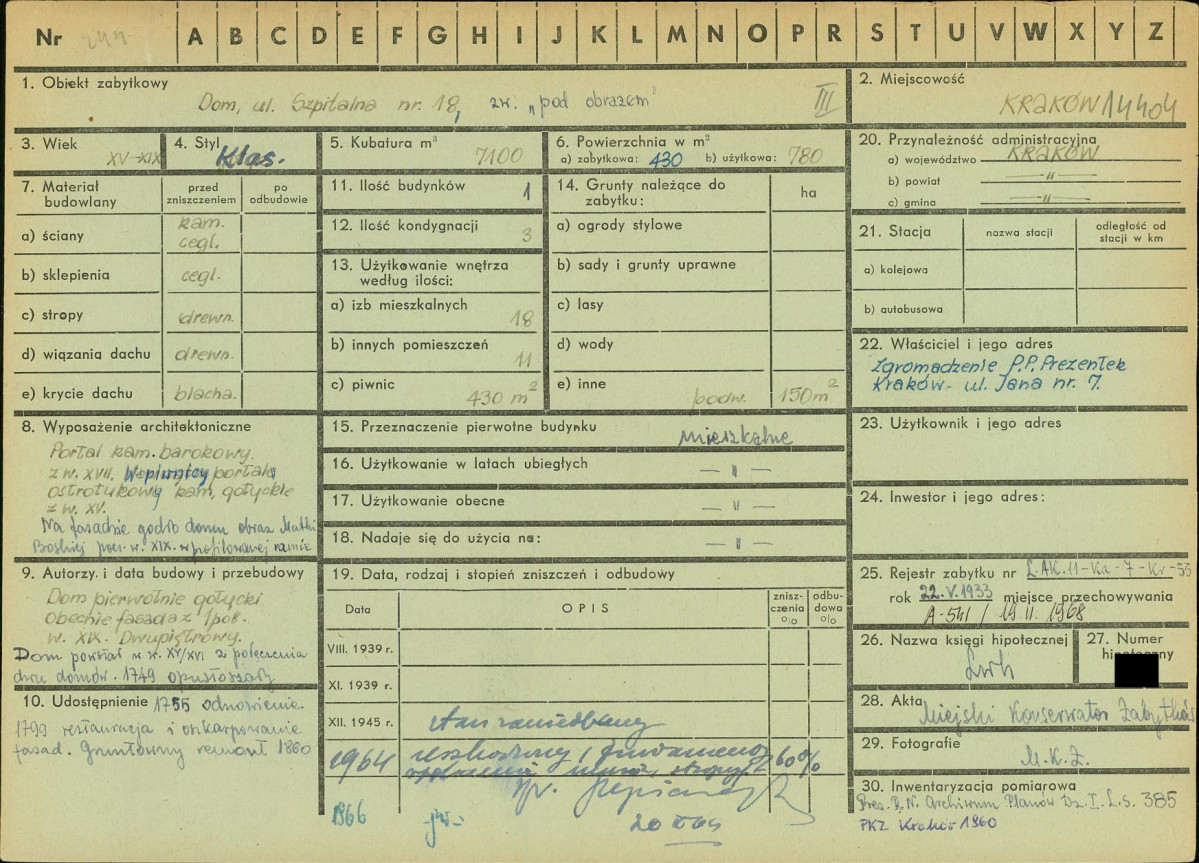 Nr
A B C D E F G H I J K L M N O P R S T U V W X Y Z
1. Obiekt zabytkowy
Dom, ul. Szpitalna nr. 18, zw. „pod obrazem"
III
2. Miejscowość
KRAKÓW 14404
3. Wiek
XV-XIX
4. Styl
Klas.
5. Kubatura m³
7100
6. Powierzchnia w m²
a) zabytkowa: 430 b) użytkowa: 780
20. Przynależność administracyjna
a) województwo KRAKÓW
b) powiat —"—
c) gmina —"—
7. Materiał budowlany
przed zniszczeniem
po odbudowie
a) ściany kam. cegl.
b) sklepienia cegl.
c) stropy drewn.
d) wiązania dachu drewn.
e) krycie dachu blacha.
11. Ilość budynków 1
12. Ilość kondygnacji 3
13. Użytkowanie wnętrza
według ilości:
a) izb mieszkalnych 18
b) innych pomieszczeń 11
c) piwnic 430 m²
14. Grunty należące do
zabytku:
ha
a) ogrody stylowe
b) sady i grunty uprawne
c) lasy
d) wody
e) inne podw. 150m²
21. Stacja
nazwa stacji
odległość od
stacji w km
a) kolejowa
b) autobusowa
22. Właściciel i jego adres
Zgromadzenie P.P. Prezentek
Kraków - ul. Jana nr. 7.
8. Wyposażenie architektoniczne
Portal kam. barokowy.
z w. XVII. W piwnicy portale
ostrołukowy kam. gotyckie
z w. XV.
Na fasadzie godło domu obraz Matki
Boskiej pocz. w. XIX. w profilowanej ramie
15. Przeznaczenie pierwotne budynku
mieszkalne
16. Użytkowanie w latach ubiegłych — " —
17. Użytkowanie obecne — " —
18. Nadaje się do użycia na: — " —
23. Użytkownik i jego adres
24. Inwestor i jego adres:
9. Autorzy i data budowy i przebudowy
Dom pierwotnie gotycki
Obecnie fasada z 1 poł.
w. XIX. Dwupiętrowy.
Dom powstał w w. XV/XVI z połączenia
dwu domów. 1749 opustoszały
10. Udostępnienie 1755 odnowienie
1799 restauracja i oskarpowanie
fasad. Gruntowny remont 1860
19. Data, rodzaj i stopień zniszczeń i odbudowy
Data
OPIS
znisz-
czenia
%
odbu-
dowa
%
VIII. 1939 r.
XI. 1939 r.
XII. 1945 r. stan zaniedbany
1964 60%
1966 jw-
25. Rejestr zabytku nr L.AK.11-Ka-7-Kr-53
rok 22.V.1933 miejsce przechowywania
A-541 / 19 II. 1968
26. Nazwa księgi hipotecznej
Lwh
27. Numer
hipoteczny
28. Akta Miejski Konserwator Zabytków
29. Fotografie
M.K.Z.
30. Inwentaryzacja pomiarowa
Prez. R.N. Archiwum Planów Dz. I. L.s. 385
PKZ Kraków 1960